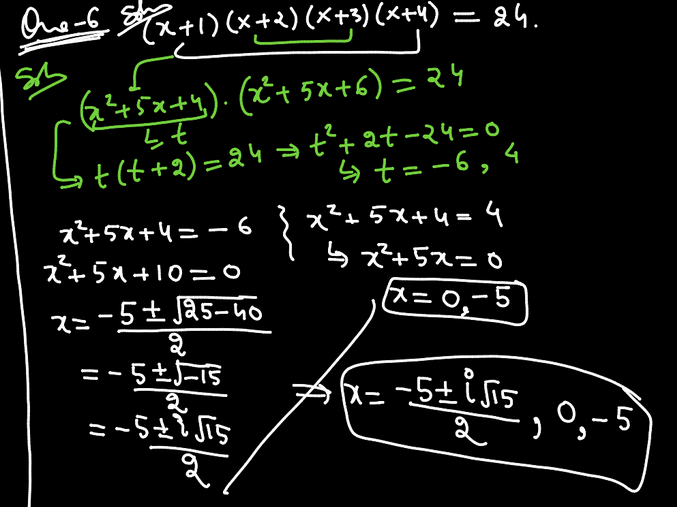 Que-6 Soln (x+1)(x+2)(x+3)(x+4) = 24.
Soln
(x²+5x+4).(x²+5x+6) = 24
↳ t
↳ t(t+2) = 24 ⇒ t²+2t-24=0
↳ t = -6, 4
x²+5x+4 = -6
x²+5x+10=0
x= (-5 ± √(25-40))/2
= (-5 ± √-15)/2
= (-5 ± i√15)/2
x²+5x+4 = 4
↳ x²+5x=0
x=0,-5
⇒ x= (-5 ± i√15)/2, 0,-5